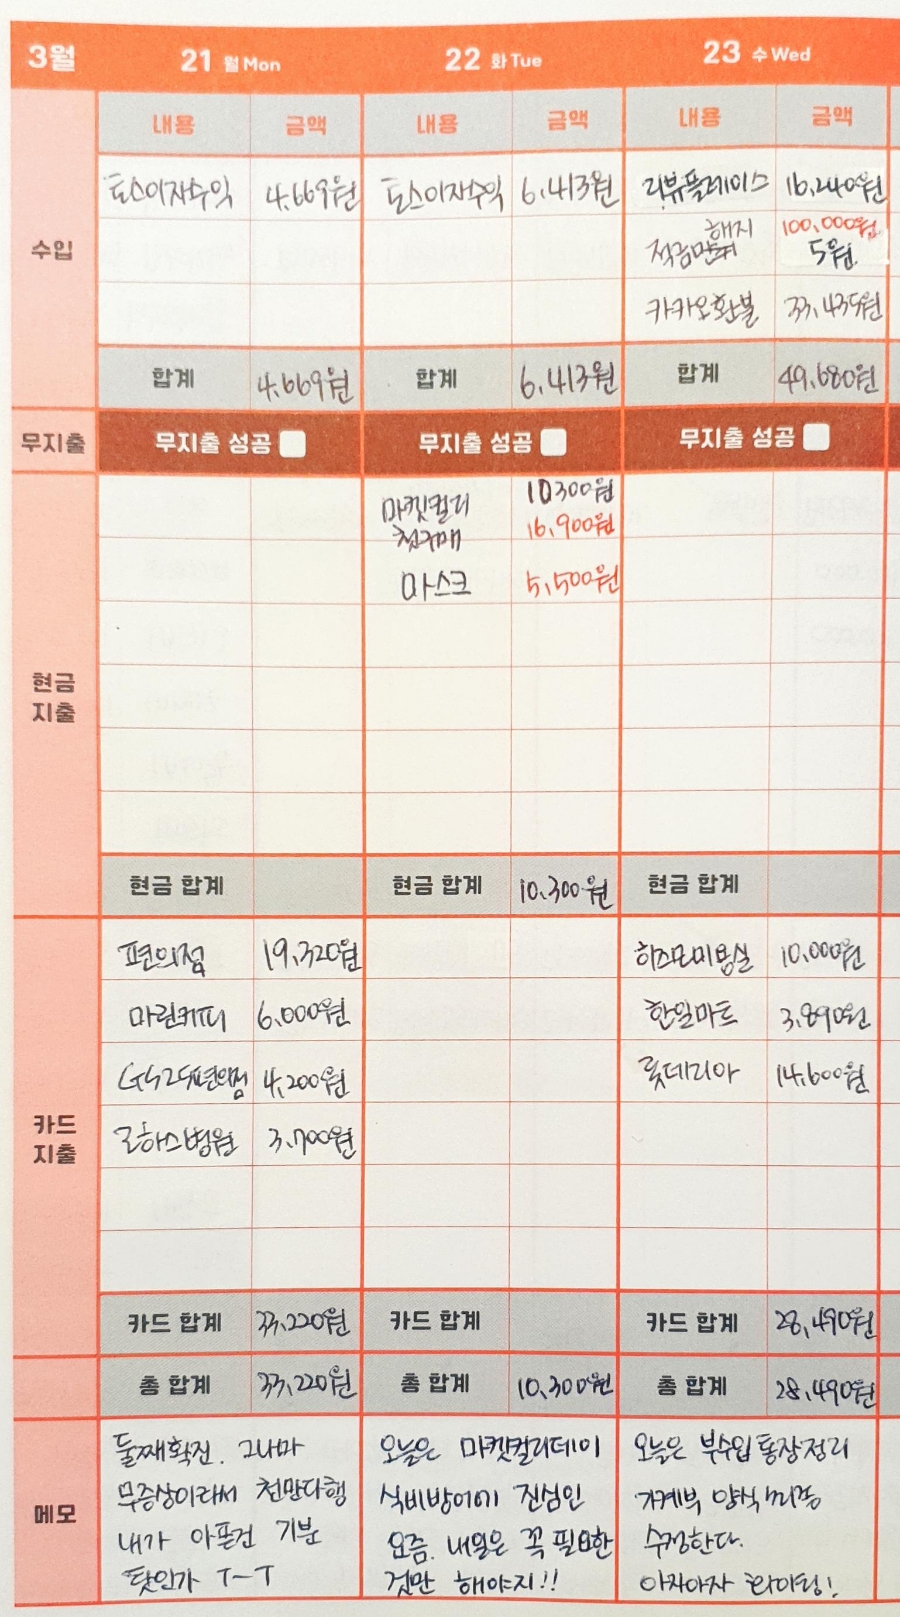 3월 21 월 Mon 22 화 Tue 23 수 Wed
내용 금액 내용 금액 내용 금액
수입
토스이자수익 4,669원 토스이자수익 6,413원 리뷰플레이스 16,240원
적금만기 해지 100,000원 5원
카카오환불 33,435원
합계 4,669원 합계 6,413원 합계 49,680원
무지출 무지출 성공 무지출 성공 무지출 성공
현금 지출
마켓컬리 10300원
첫구매 16,900원
마스크 5,500원
현금 합계 현금 합계 10,300원 현금 합계
카드 지출
편의점 19,320원 히즈모미용실 10,000원
마린커피 6,000원 한일마트 3,890원
GS25편의점 4,200원 롯데리아 14,600원
고하스병원 3,700원
카드 합계 33,220원 카드 합계 카드 합계 28,490원
총 합계 33,220원 총 합계 10,300원 총 합계 28,490원
메모
둘째확진. 그나마
무증상이라서 천만다행
내가 아픈건 기분
탓인가 T-T
오늘은 마켓컬리데이
식비방어에 진심인
요즘. 내일은 꼭 필요한
것만 해야지!!
오늘은 부수입통장정리
가계부 양식
수정한다.
아자아자 화이팅!